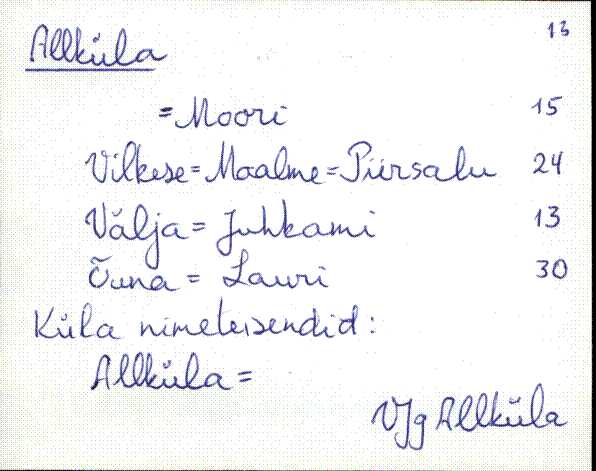 Allküla 13
=Moori 15
Vilkese=Maalme=Piirsalu 24
Välja = Juhkami 13
Õuna = Lauri 30
Küla nimeteisendid:
Allküla =
Vjg Allküla